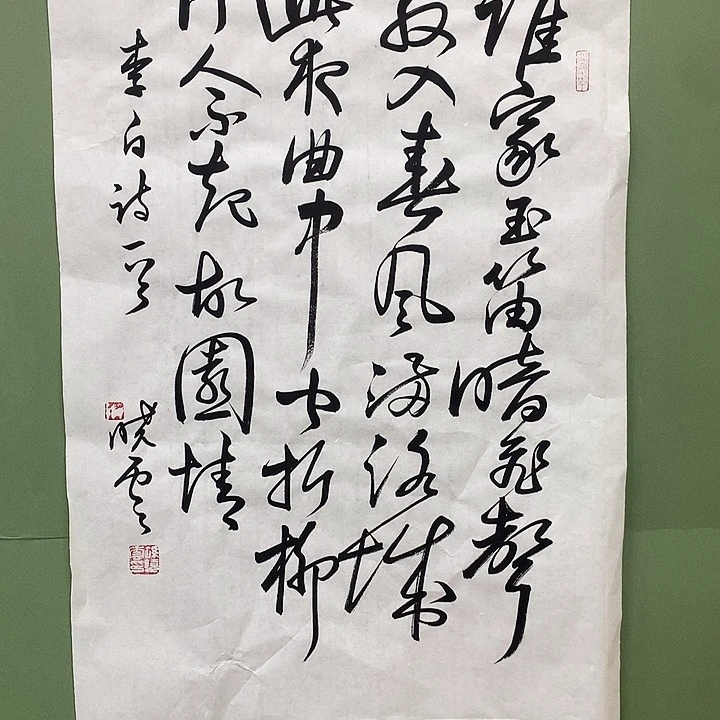 誰家玉笛暗飛聲
散入春风滿洛城
此夜曲中闻折柳
何人不起故園情
李白詩一首
晓雲